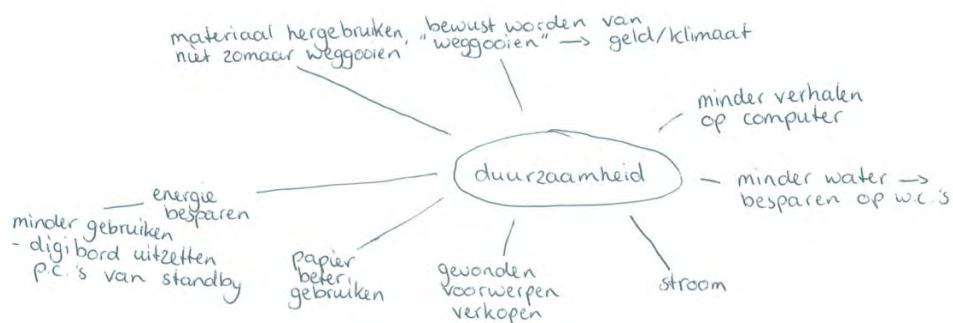 materiaal hergebruiken,
niet zomaar weggooien
bewust worden van
"weggooien" → geld/klimaat
minder verhalen
op computer
duurzaamheid
minder water →
besparen op w.c.'s
energie
besparen
minder gebruiken
- digibord uitzetten
p.c.'s van standby
papier
beter
gebruiken
gevonden
voorwerpen
verkopen
stroom